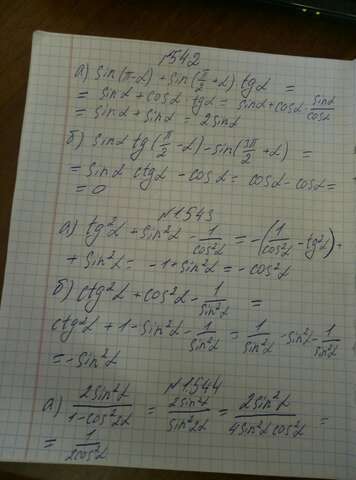 №1542
а) sin(π-α) + sin(π/2+α)·tgα =
= sinα + cosα·tgα = sinα + cosα·sinα/cosα
= sinα + sinα = 2sinα
б) sinα tg(π/2-α) - sin(3π/2+α) =
= sinα ctgα - cosα = cosα - cosα =
= 0
№1543
а) tg²α + sin²α - 1/cos²α = -(1/cos²α - tg²α) +
+ sin²α = -1 + sin²α = -cos²α
б) ctg²α + cos²α - 1/sin²α =
ctg²α + 1 - sin²α - 1/sin²α = 1/sin²α - sin²α - 1/sin²α
= -sin²α
№1544
а) 2sin²α/1-cos²2α = 2sin²α/sin²2α = 2sin²α/4sin²α cos²α =
= 1/2cos²α